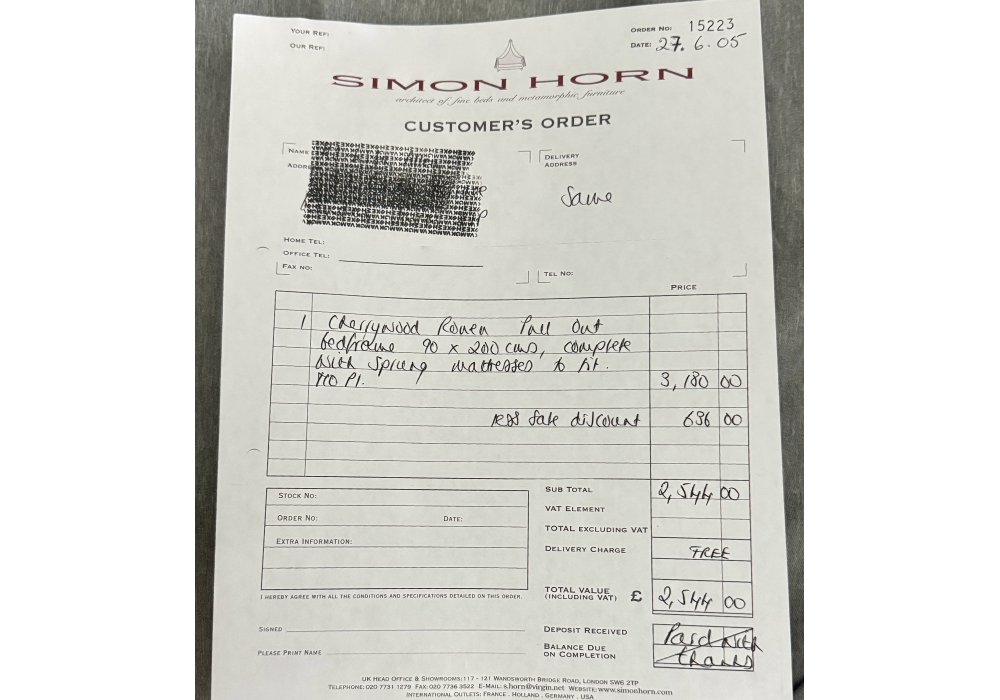 YOUR REF:
OUR REF:
ORDER NO: 15223
DATE: 27.6.05
SIMON HORN
architect of fine beds and metamorphic furniture
CUSTOMER'S ORDER
NAME
ADDRE
DELIVERY
ADDRESS
Same
HOME TEL:
OFFICE TEL:
FAX NO:
TEL NO:
PRICE
1 Cherrywood Rouen Pull Out
bedframe 90 x 200 cms, complete
with sprung mattresses to fit.
3,180 00
less sale discount 636 00
SUB TOTAL 2,544 00
VAT ELEMENT
TOTAL EXCLUDING VAT
DELIVERY CHARGE FREE
TOTAL VALUE
(INCLUDING VAT) £ 2,544 00
DEPOSIT RECEIVED Paid with
BALANCE DUE
ON COMPLETION thanks
STOCK NO:
ORDER NO: DATE:
EXTRA INFORMATION:
I HEREBY AGREE WITH ALL THE CONDITIONS AND SPECIFICATIONS DETAILED ON THIS ORDER.
SIGNED
PLEASE PRINT NAME
UK HEAD OFFICE & SHOWROOMS: 117 - 121 WANDSWORTH BRIDGE ROAD, LONDON SW6 2TP
TELEPHONE: 020 7731 1279 FAX: 020 7736 3522 E-MAIL: s.horn@virgin.net WEBSITE: www.simonhorn.com
INTERNATIONAL OUTLETS: FRANCE . HOLLAND . GERMANY . USA